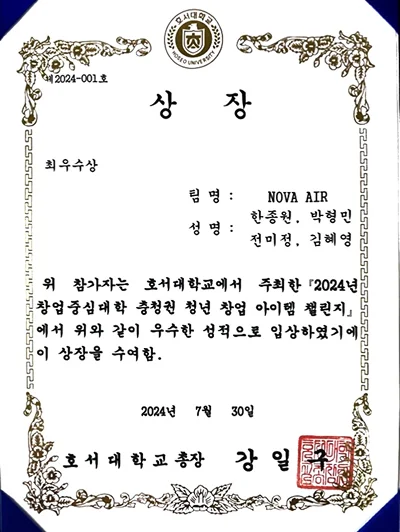 호서대학교
HOSEO UNIVERSITY
제2024-001호
상 장
최우수상
팀 명 : NOVA AIR
성 명 : 한종원, 박형민
전미정, 김혜영
위 참가자는 호서대학교에서 주최한『2024년
창업중심대학 충청권 청년 창업 아이템 챌린지』
에서 위와 같이 우수한 성적으로 입상하였기에
이 상장을 수여함.
2024년 7월 30일
호서대학교총장 강 일 구